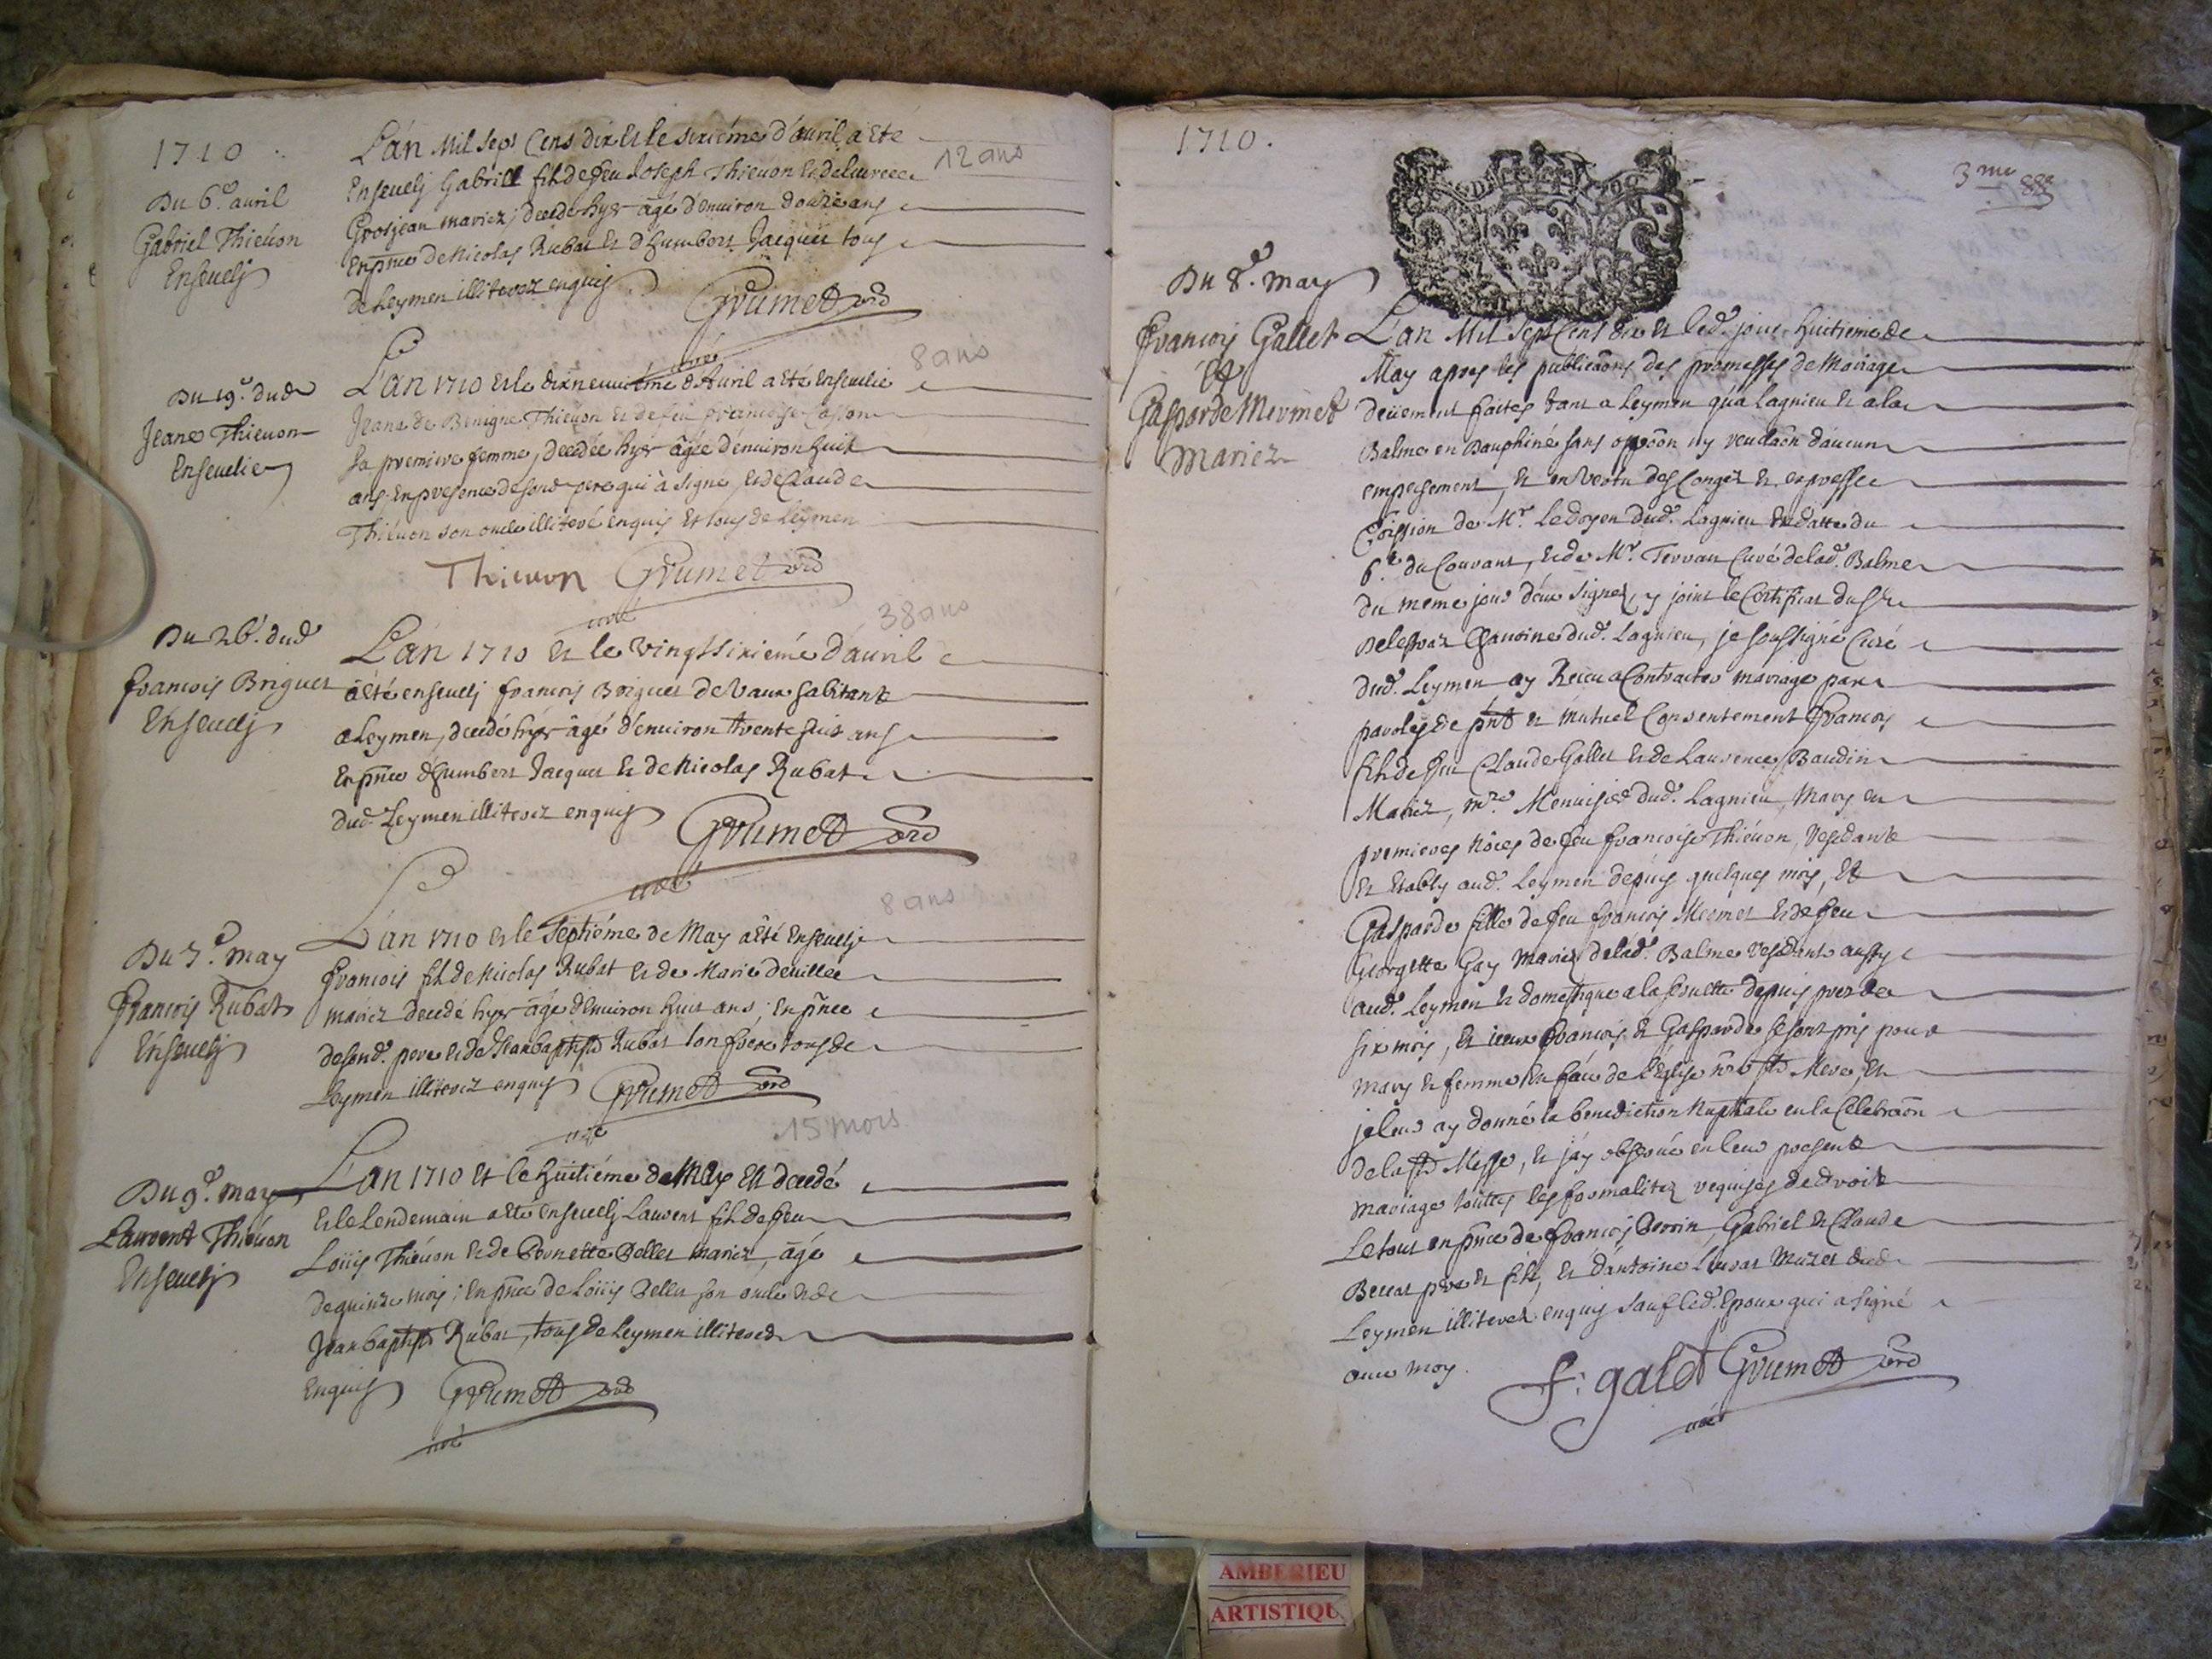 1710
Du 6e. auril
Gabriel Thieuon
Enseuelj
L'an Mil Sept Cens dix et le sixiéme d'auril a été
Enseuelj Gabriel fils de feu Joseph Thieuon et de
Grosjean mariez, decedé hyer âgé d'enuiron douze ans
En pñce de Nicolas Rubat et d'humbert Jacquet tous
de Leymen illiterez enquis
Grumet
curé
12 ans
Du 19e. dud
Jeane Thieuon
Enseuelie
L'an 1710 et le dixneuuiéme d'Auril a été Enseuelie
Jeane de Benigne Thieuon et de feu françoise
sa premiere femme, decedée hyer âgée d'enuiron huit
ans. En presence de sond pere qui à signé, et de Claude
Thiéuon son oncle illiteré enquis et tous de Leymen
Thieuon Grumet
curé
8 ans
Du 26e. dud
francois Briguet
Enseuelj
L'an 1710 et le vingtsixiéme d'auril
a été enseuelj francois Briguet de Vaux habitant
a Leymen, decedé hyer âgé d'enuiron trente huit ans
En pñce d'humbert Jacquet et de Nicolas Rubat
dud. Leymen illiterez enquis
Grumet
curé
38 ans
Du 7e. may
francois Rubat
Enseuelj
L'an 1710 et le Septiéme de May a été Enseuelj
francois fils de Nicolas Rubat et de Marie deuillée
mariez decedé hyer âgé d'enuiron huit ans; En pñce
de sond. pere et de Jeanbaptiste Rubat son frere tous de
Leymen illiterez enquis Grumet
curé
8 ans
Du 9e. may
Laurent Thiéuon
Enseuelj
L'an 1710 et le huitiéme de May est decedé
et le lendemain a été enseuelj Laurent fils de feu
Loüis Thiéuon et de Pernette Bellet mariez, âgé
de quinze mois; En pñce de Loüis Bellet son oncle et de
Jeanbaptiste Rubat, tous de Leymen illiterez
Enquis Grumet
curé
15 mois
1710.
3me 88e
Du 8e. may
francois Gallet
et
Gasparde Mermet
Mariez
L'an Mil Sept Cens dix et led. jour huitieme de
May apres les publicaõns des promesses de Mariage
deüement faites tant a Leymen qu'a Lagnieu et a la
Balme en Dauphiné sans oppoõn ny reuelaõn d'aucun
empeschement, et en vertu des Congez et expresse
Cõission de Mr. Le doyen dud. Lagnieu en datte du
6e. du Courant, et de Mr. Terran Curé de lad. Balme
du meme jour d'eux signez, y joint le Certificat du sr
chanoine dud. Lagnieu, je soussigné Curé
dud. Leymen ay Receu a Contracter mariage par
paroles de pñt et mutuel Consentement francois
fils de feu Claude Gallet et de Laurence Baudin
Mariez, mre. Menuisier dud. Lagnieu, Mary en
premieres nôces de feu francoise Thiéuon, residant
et etably aud. Leymen depuis quelques mois, et
Gasparde fille de feu francois Mermet et de feu
Georgette Gay Mariez de lad. Balme residante aussy
aud. Leymen et domestique a la depuis prez de
six mois, et iceux francois et Gasparde se sont pris pour
mary et femme en face de l'Eglise nre ste Mere, et
je leur ay donné la benediction Nuptiale en la Celebraõn
de la ste Messe, et j'ay obserué en leur present
mariage toutes les formalitez requises de droit
Le tout en pñce de francois Perrin, Gabriel et Claude
pere et fils, et d'antoine dud.
Leymen illiterez enquis sauf led. Epoux qui a signé
auec moy.
f: galet Grumet
curé
AMBERIEU
ARTISTIQU